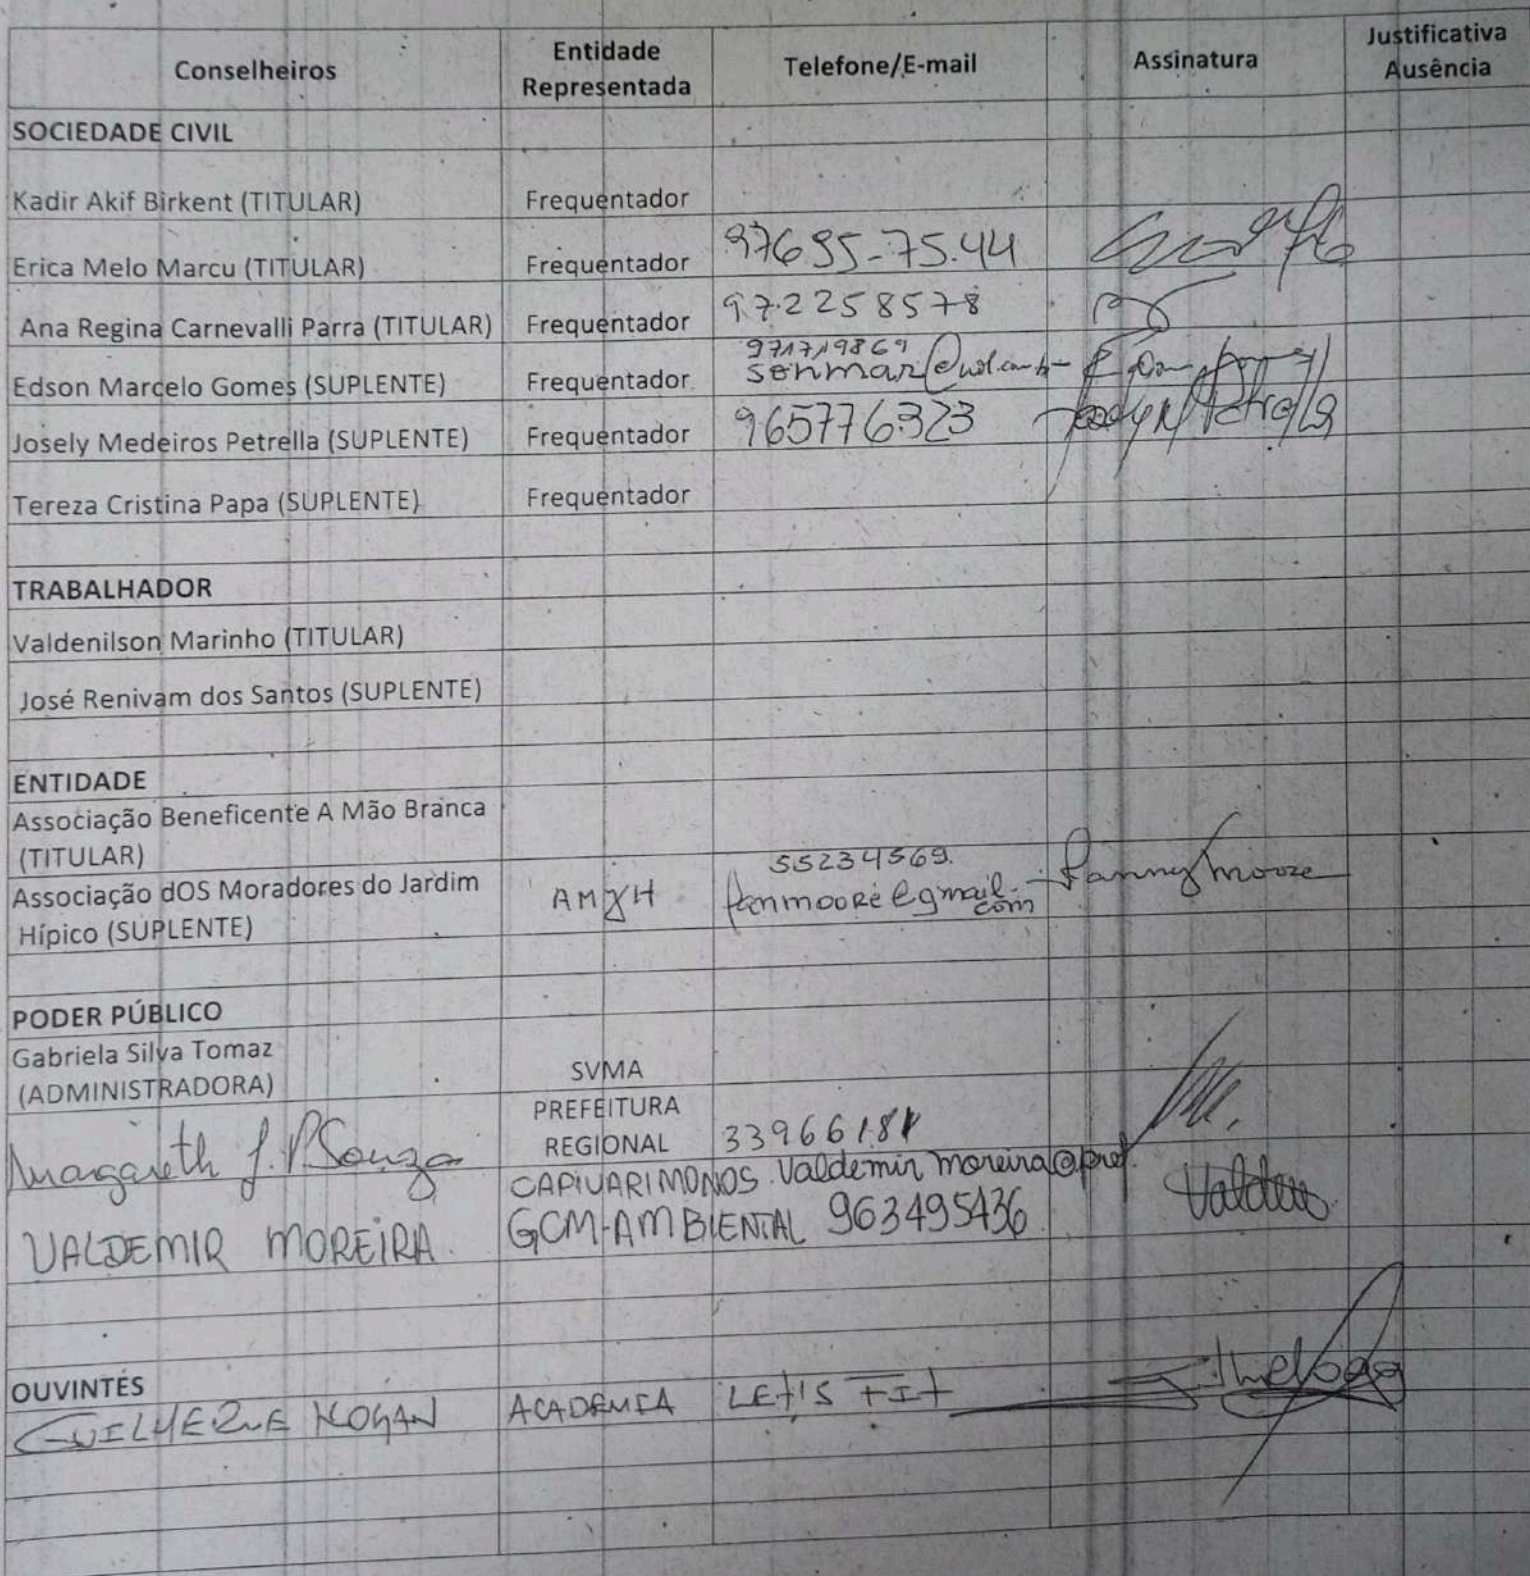 Conselheiros Entidade Representada Telefone/E-mail Assinatura Justificativa Ausência
SOCIEDADE CIVIL
Kadir Akif Birkent (TITULAR) Frequentador
Erica Melo Marcu (TITULAR) Frequentador 97695-75.44
Ana Regina Carnevalli Parra (TITULAR) Frequentador 97.2258578
Edson Marcelo Gomes (SUPLENTE) Frequentador 971719869
Josely Medeiros Petrella (SUPLENTE) Frequentador 965776323
Tereza Cristina Papa (SUPLENTE) Frequentador
TRABALHADOR
Valdenilson Marinho (TITULAR)
José Renivam dos Santos (SUPLENTE)
ENTIDADE
Associação Beneficente A Mão Branca
(TITULAR)
Associação dOS Moradores do Jardim
Hípico (SUPLENTE)
55234569.
fanmoore@gmail.com Fanny Moore
PODER PÚBLICO
Gabriela Silva Tomaz
(ADMINISTRADORA) SVMA
PREFEITURA
REGIONAL
Margareth J. P. Souza
CAPIVARI MONOS. Valdemir moreira@pref.
VALDEMIR MOREIRA. GCM-AMBIENTAL 963495436
OUVINTES
GUILHERME KOGAN ACADEMIA LET'S FIT